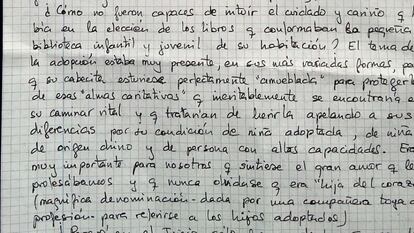 ¿Cómo no fueron capaces de intuir el cuidado y cariño q ha
bía en la elección de los libros q conformaban la pequeña
biblioteca infantil y juvenil de su habitación? El tema de
la adopción estaba muy presente, en sus más variadas formas, pa
q su cabecita estuviese perfectamente "amueblada" para proteger
de esas "almas caritativas" q inevitablemente se encontraría
su caminar vital y q tratarían de herirla apelando a sus
diferencias por su condición de niña adoptada, de niña
de origen chino y de persona con altas capacidades. Era
muy importante para nosotros q sintiese el gran amor q le
profesábamos y q nunca olvidase q era "hija del corazó
(magnífica denominación - dada por una compañera tuya d
profesión - para referirse a los hijos adoptados)